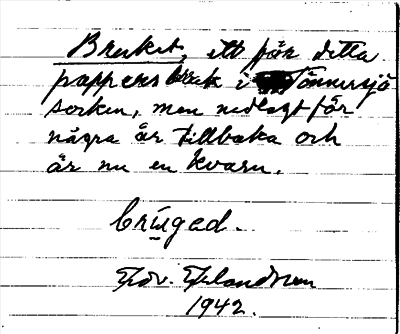 Bruket, ett för detta
pappersbruk i Tönnersjö
socken, men nedlagt för
några år tillbaka och
är nu en kvarn.
brúgad.
1942.